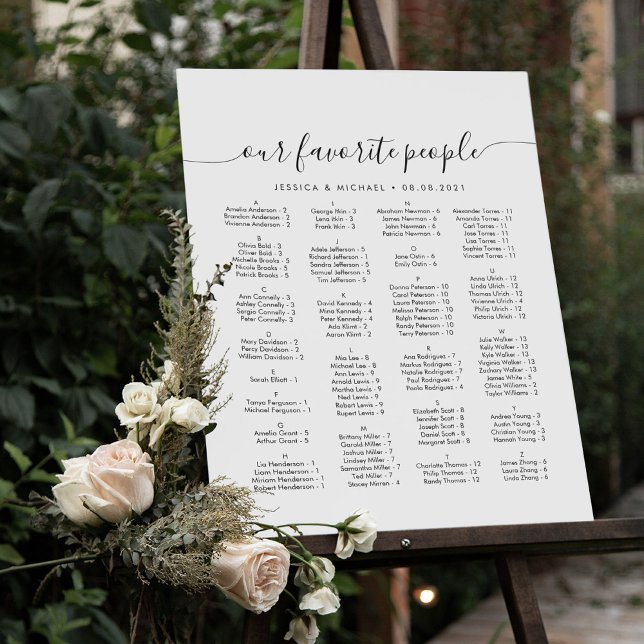 our favorite people
JESSICA & MICHAEL • 08.08.2021
A
Amelia Anderson - 2
Brandon Anderson - 2
Vivienne Anderson - 2
B
Olivia Bold - 3
Oliver Bold - 3
Michelle Brooks - 5
Nicole Brooks - 5
Patrick Brooks - 5
C
Ann Connelly - 3
Ashley Connelly - 3
Sergio Connelly - 3
Peter Connelly - 3
D
Mary Davidson - 2
Percy Davidson - 2
William Davidson - 2
E
Sarah Elliott - 1
F
Tanya Ferguson - 1
Michael Ferguson - 1
G
Amelia Grant - 5
Arthur Grant - 5
H
Lia Henderson - 1
Liam Henderson - 1
Miriam Henderson - 1
Robert Henderson - 1
I
George Itkin - 3
Lena Itkin - 3
Frank Itkin - 3
J
Adele Jefferson - 5
Richard Jefferson - 5
Sandra Jefferson - 5
Samuel Jefferson - 5
Tim Jefferson - 5
K
David Kennedy - 4
Mina Kennedy - 4
Peter Kennedy - 4
Ada Klimt - 2
Aaron Klimt - 2
L
Mia Lee - 8
Michael Lee - 8
Ann Lewis - 9
Arnold Lewis - 9
Martha Lewis - 9
Ned Lewis - 9
Robert Lewis - 9
Rupert Lewis - 9
M
Brittany Miller - 7
Garold Miller - 7
Joshua Miller - 7
Lindsey Miller - 7
Samantha Miller - 7
Ted Miller - 7
Stacey Mirren - 4
N
Abraham Newman - 6
James Newman - 6
John Newman - 6
Patricia Newman - 6
O
Jane Ostin - 6
Emily Ostin - 6
P
Donna Peterson - 10
Carol Peterson - 10
Laura Peterson - 10
Melissa Peterson - 10
Ralph Peterson - 10
Randy Peterson - 10
Terry Peterson - 10
R
Ana Rodriguez - 7
Markus Rodriguez - 7
Natalie Rodriguez - 7
Paul Rodriguez - 7
Paola Rodriguez - 4
S
Elizabeth Scott - 8
Jennifer Scott - 8
Joseph Scott - 8
Daniel Scott - 8
Margaret Scott - 8
T
Charlotte Thomas - 12
Philip Thomas - 12
Randy Thomas - 12
Alexander Torres - 11
Amanda Torres - 11
Carl Torres - 11
Jose Torres - 11
Lisa Torres - 11
Sophia Torres - 11
Vincent Torres - 11
U
Anna Ulrich - 12
Linda Ulrich - 12
Thomas Ulrich - 12
Vivienne Ulrich - 4
Philip Ulrich - 12
Victoria Ulrich - 12
W
Julie Walker - 13
Kelly Walker - 13
Kyle Walker - 13
Virginia Walker - 13
Zachary Walker - 13
James White - 5
Olivia Williams - 2
Taylor Williams - 2
Y
Andrea Young - 3
Austin Young - 3
Cindy Young - 3
Hannah Young - 3
Z
James Zhang - 6
Laura Zhang - 6
Linda Zhang - 6